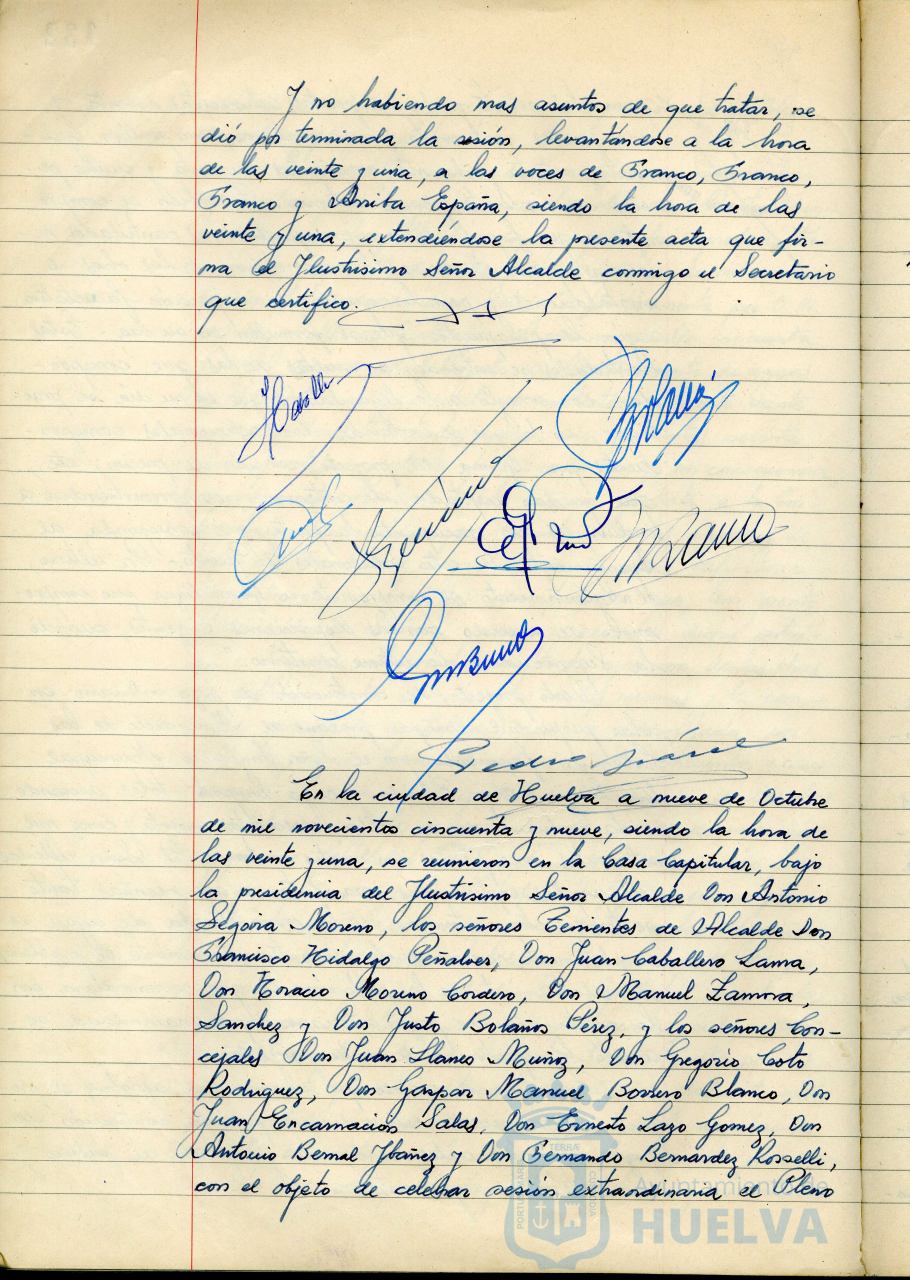 Y no habiendo mas asuntos de que tratar, se
dió por terminada la sesión, levantándose a la hora
de las veinte y una, a las voces de Franco, Franco,
Franco y Arriba España, siendo la hora de las
veinte y una, extendiéndose la presente acta que fir-
ma el Ilustrisimo Señor Alcalde conmigo el Secretario
que certifico.
En la ciudad de Huelva a nueve de Octubre
de mil novecientos cincuenta y nueve, siendo la hora de
las veinte y una, se reunieron en la Casa Capitular, bajo
la presidencia del Ilustrisimo Señor Alcalde Don Antonio
Segovia Moreno, los señores Tenientes de Alcalde Don
Francisco Hidalgo Peñalver, Don Juan Caballero Lama,
Don Horacio Moreno Cordero, Don Manuel Zamora,
Sanchez y Don Justo Bolaños Pérez, y los señores Con-
cejales Don Juan Llanes Muñoz, Don Gregorio Coto
Rodriguez, Don Gaspar Manuel Borrero Blanco, Don
Juan Encarnación Salas, Don Ernesto Lazo Gomez, Don
Antonio Bernal Ibáñez y Don Fernando Bernardez Rosselli,
con el objeto de celebrar sesión extraordinaria el Pleno
Ayuntamiento de
HUELVA